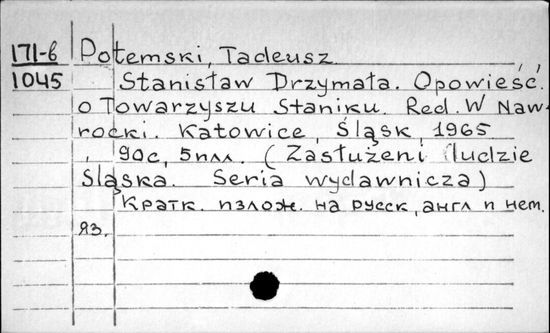 171-6 Potemski, Tadeusz.
1045 Stanisław Drzymała. Opowieść.
o Towarzyszu Staniku. Red. W Naw-
rocki. Katowice, Śląsk, 1965
90с, 5илл. (Zasłużeni ludzie
Śląska. Seria wydawnicza)
Кратк. излож. на русск, англ и нем.
яз.